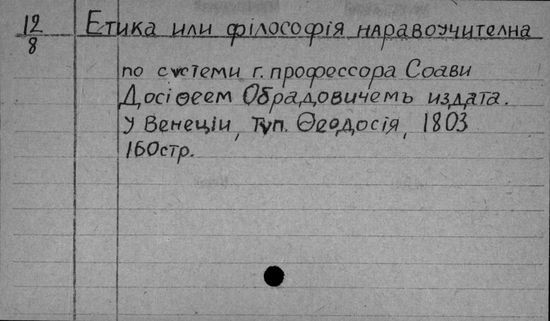 12/8 Етика или філософія наравоучителна
по системи г. профессора Соави
Досіѳеем Обрадовичемъ издата.
У Венеціи, Тѵп. Ѳеодосія, 1803
160стр.